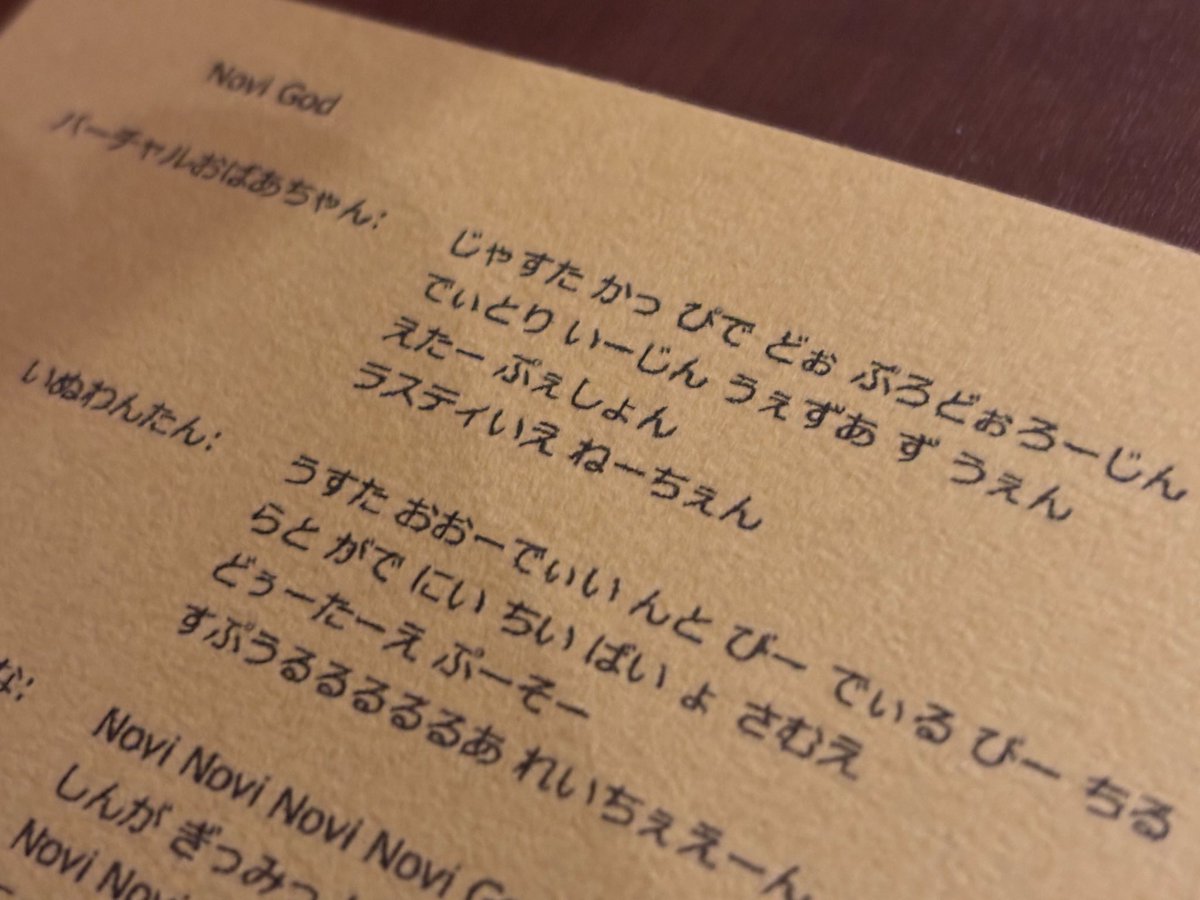 Novi God
バーチャルおばあちゃん:
じゃすた かっ ぴで どぉ ぶろどぉろーじん
でぃとり いーじん うぇずあ ず うぇん
えたー ぷぇしょん
ラスティいえ ねーちぇん
いぬわんたん:
うすた おおーでぃい んと びー でぃる びー ちる
らと がで にい ちい ばい ょ さむえ
どぅーたーえ ぷーそー
すぷうるるるるるあ れいちぇえーん
な:
Novi Novi Novi Novi
しんが ぎっみっ
Novi Novi